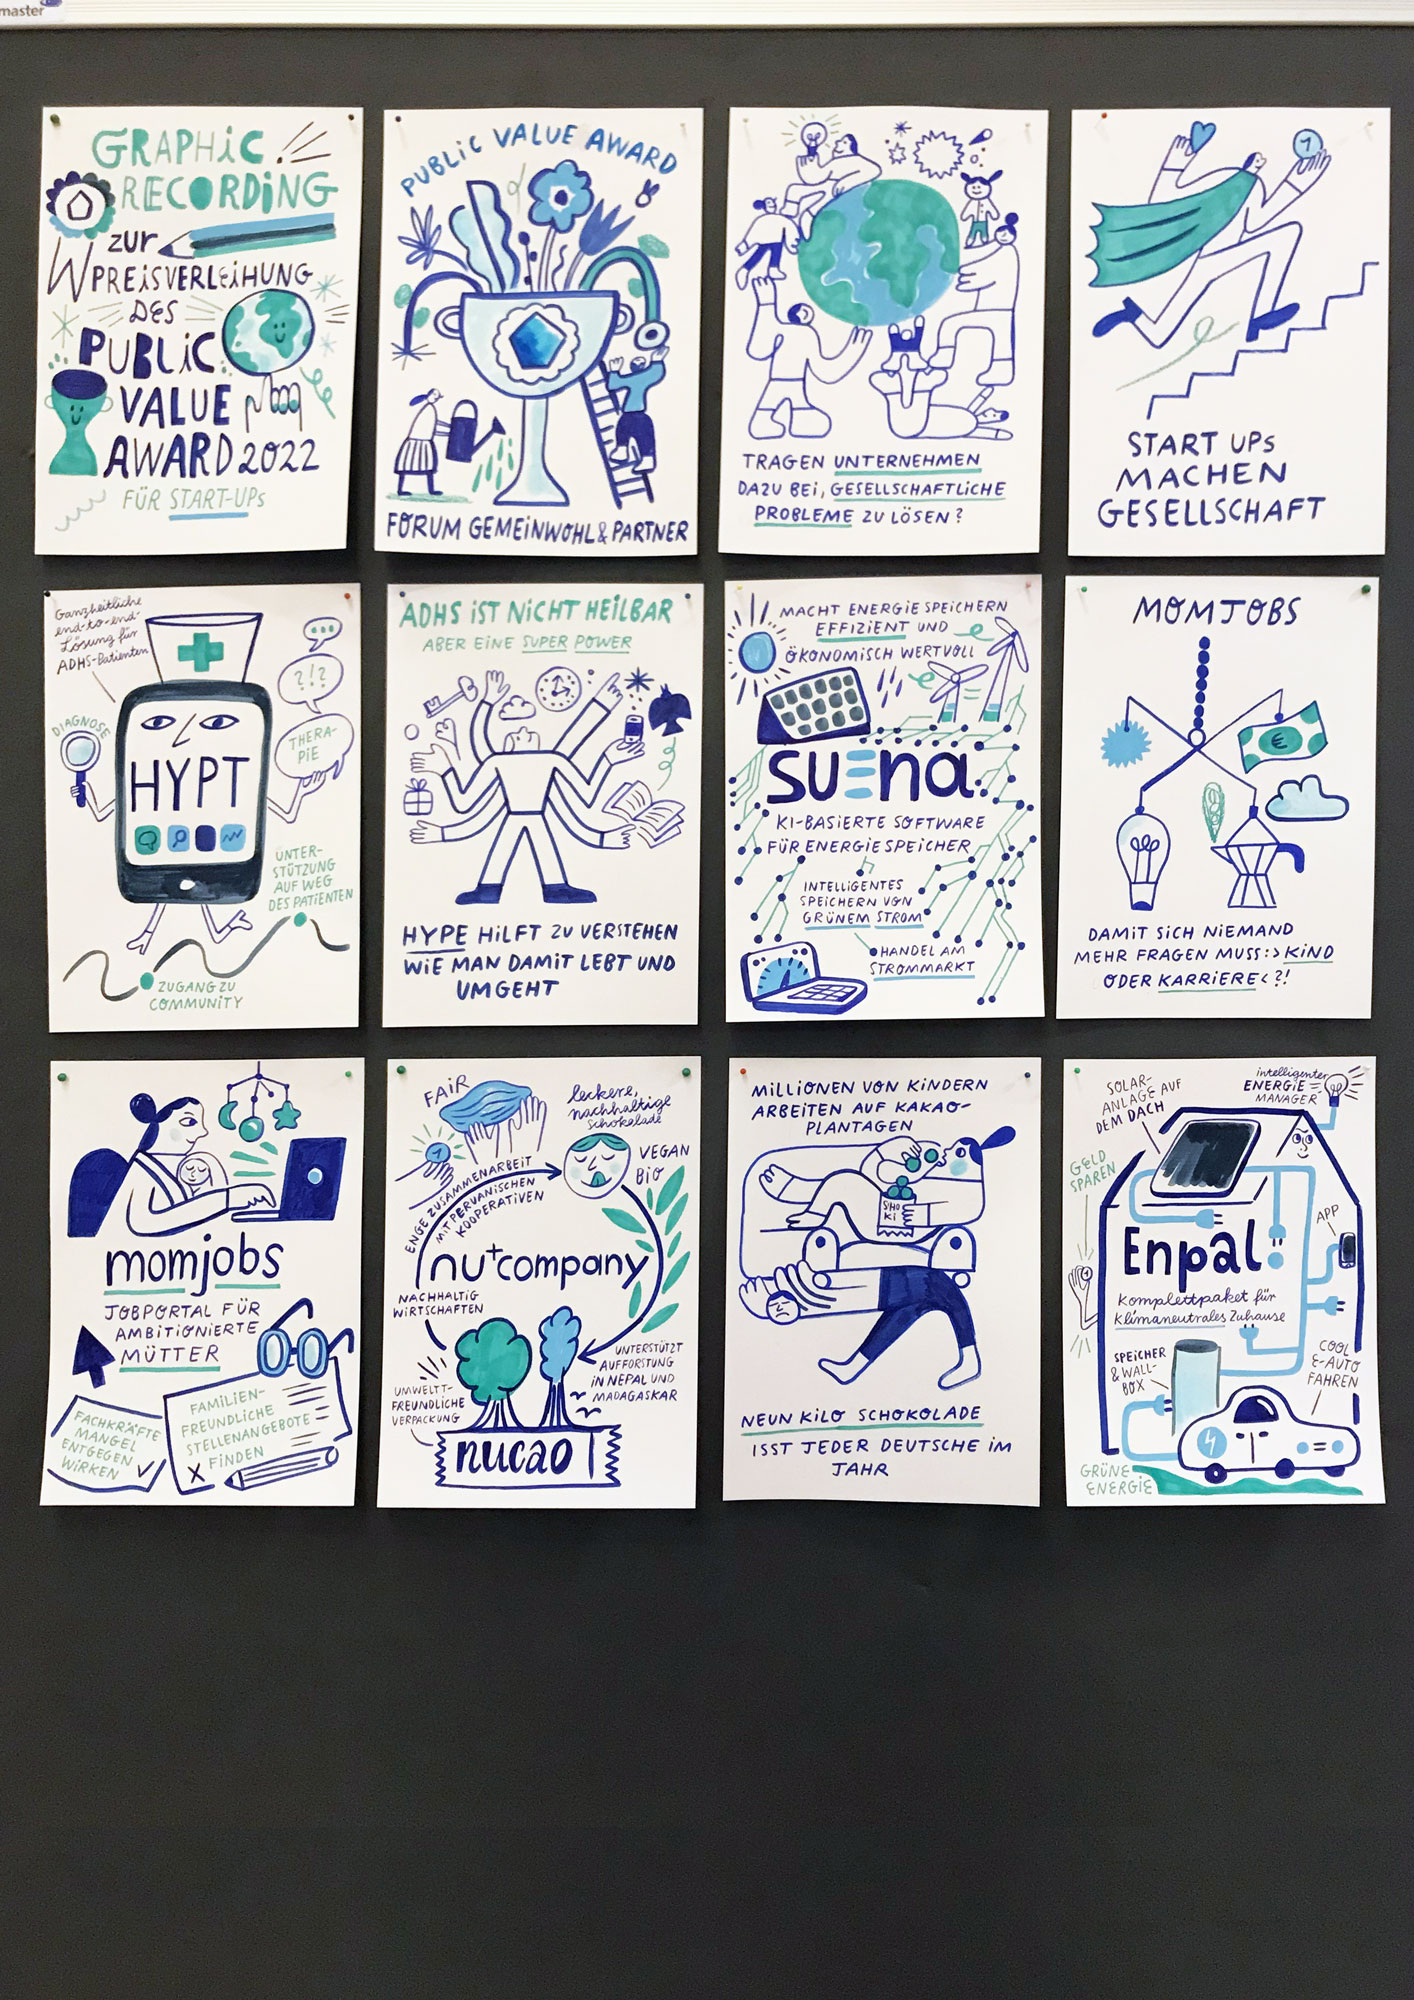 master
GRAPHiC
RECORDiNG
zur
PREiSVERLEiHUNG
DES
PUBLiC
VALUE
AWARD 2022
FÜR START-UPs
PUBLiC VALUE AWARD
FORUM GEMEiNWOHL & PARTNER
TRAGEN UNTERNEHMEN
DAZU BEi, GESELLSCHAFTLiCHE
PROBLEME ZU LÖSEN?
1
START UPs
MACHEN
GESELLSCHAFT
Ganzheitliche
end-to-end-
Lösung für
ADHS-Patienten
...
?!?
DIAGNOSE
THERA-
PIE
HYPT
UNTER-
STÜTZUNG
AUF WEG
DES PATIENTEN
ZUGANG ZU
COMMUNITY
ADHS iST NiCHT HEiLBAR
ABER EINE SUPER POWER
HYPE HiLFT ZU VERSTEHEN
WiE MAN DAMiT LEBT UND
UMGEHT
MACHT ENERGIE SPEICHERN
EFFIZIENT UND
ÖKONOMISCH WERTVOLL
suEna
KI-BASIERTE SOFTWARE
FÜR ENERGIESPEICHER
INTELLIGENTES
SPEICHERN VON
GRÜNEM STROM
HANDEL AM
STROMMARKT
MOMJOBS
€
DAMiT SiCH NiEMAND
MEHR FRAGEN MUSS: > KiND
ODER KARRiERE < ?!
momjobs
JOBPORTAL FÜR
AMBITIONIERTE
MÜTTER
FACHKRÄFTE
MANGEL
ENTGEGEN
WIRKEN
FAMILIEN-
FREUNDLICHE
STELLENANGEBOTE
FINDEN
X
FAIR
leckere,
nachhaltige
Schokolade
1
VEGAN
BIO
ENGE ZUSAMMENARBEIT
MIT PERUANISCHEN
KOOPERATIVEN
nu+company
NACHHALTIG
WIRTSCHAFTEN
UNTERSTÜTZT
AUFFORSTUNG
IN NEPAL UND
MADAGASKAR
UMWELTT-
FREUNDLICHE
VERPACKUNG
nucao
MiLLiONEN VON KiNDERN
ARBEiTEN AUF KAKAO-
PLANTAGEN
SHO
KI
NEUN KiLO SCHOKOLADE
ISST JEDER DEUTSCHE iM
JAHR
SOLAR-
ANLAGE AUF
DEM DACH
intelligenter
ENERGIE=
MANAGER
GELD
SPAREN
APP
1
Enpal.
Komplettpaket für
klimaneutrales Zuhause
SPEICHER
& WALL-
BOX
COOL
E-AUTO
FAHREN
GRÜNE
ENERGIE